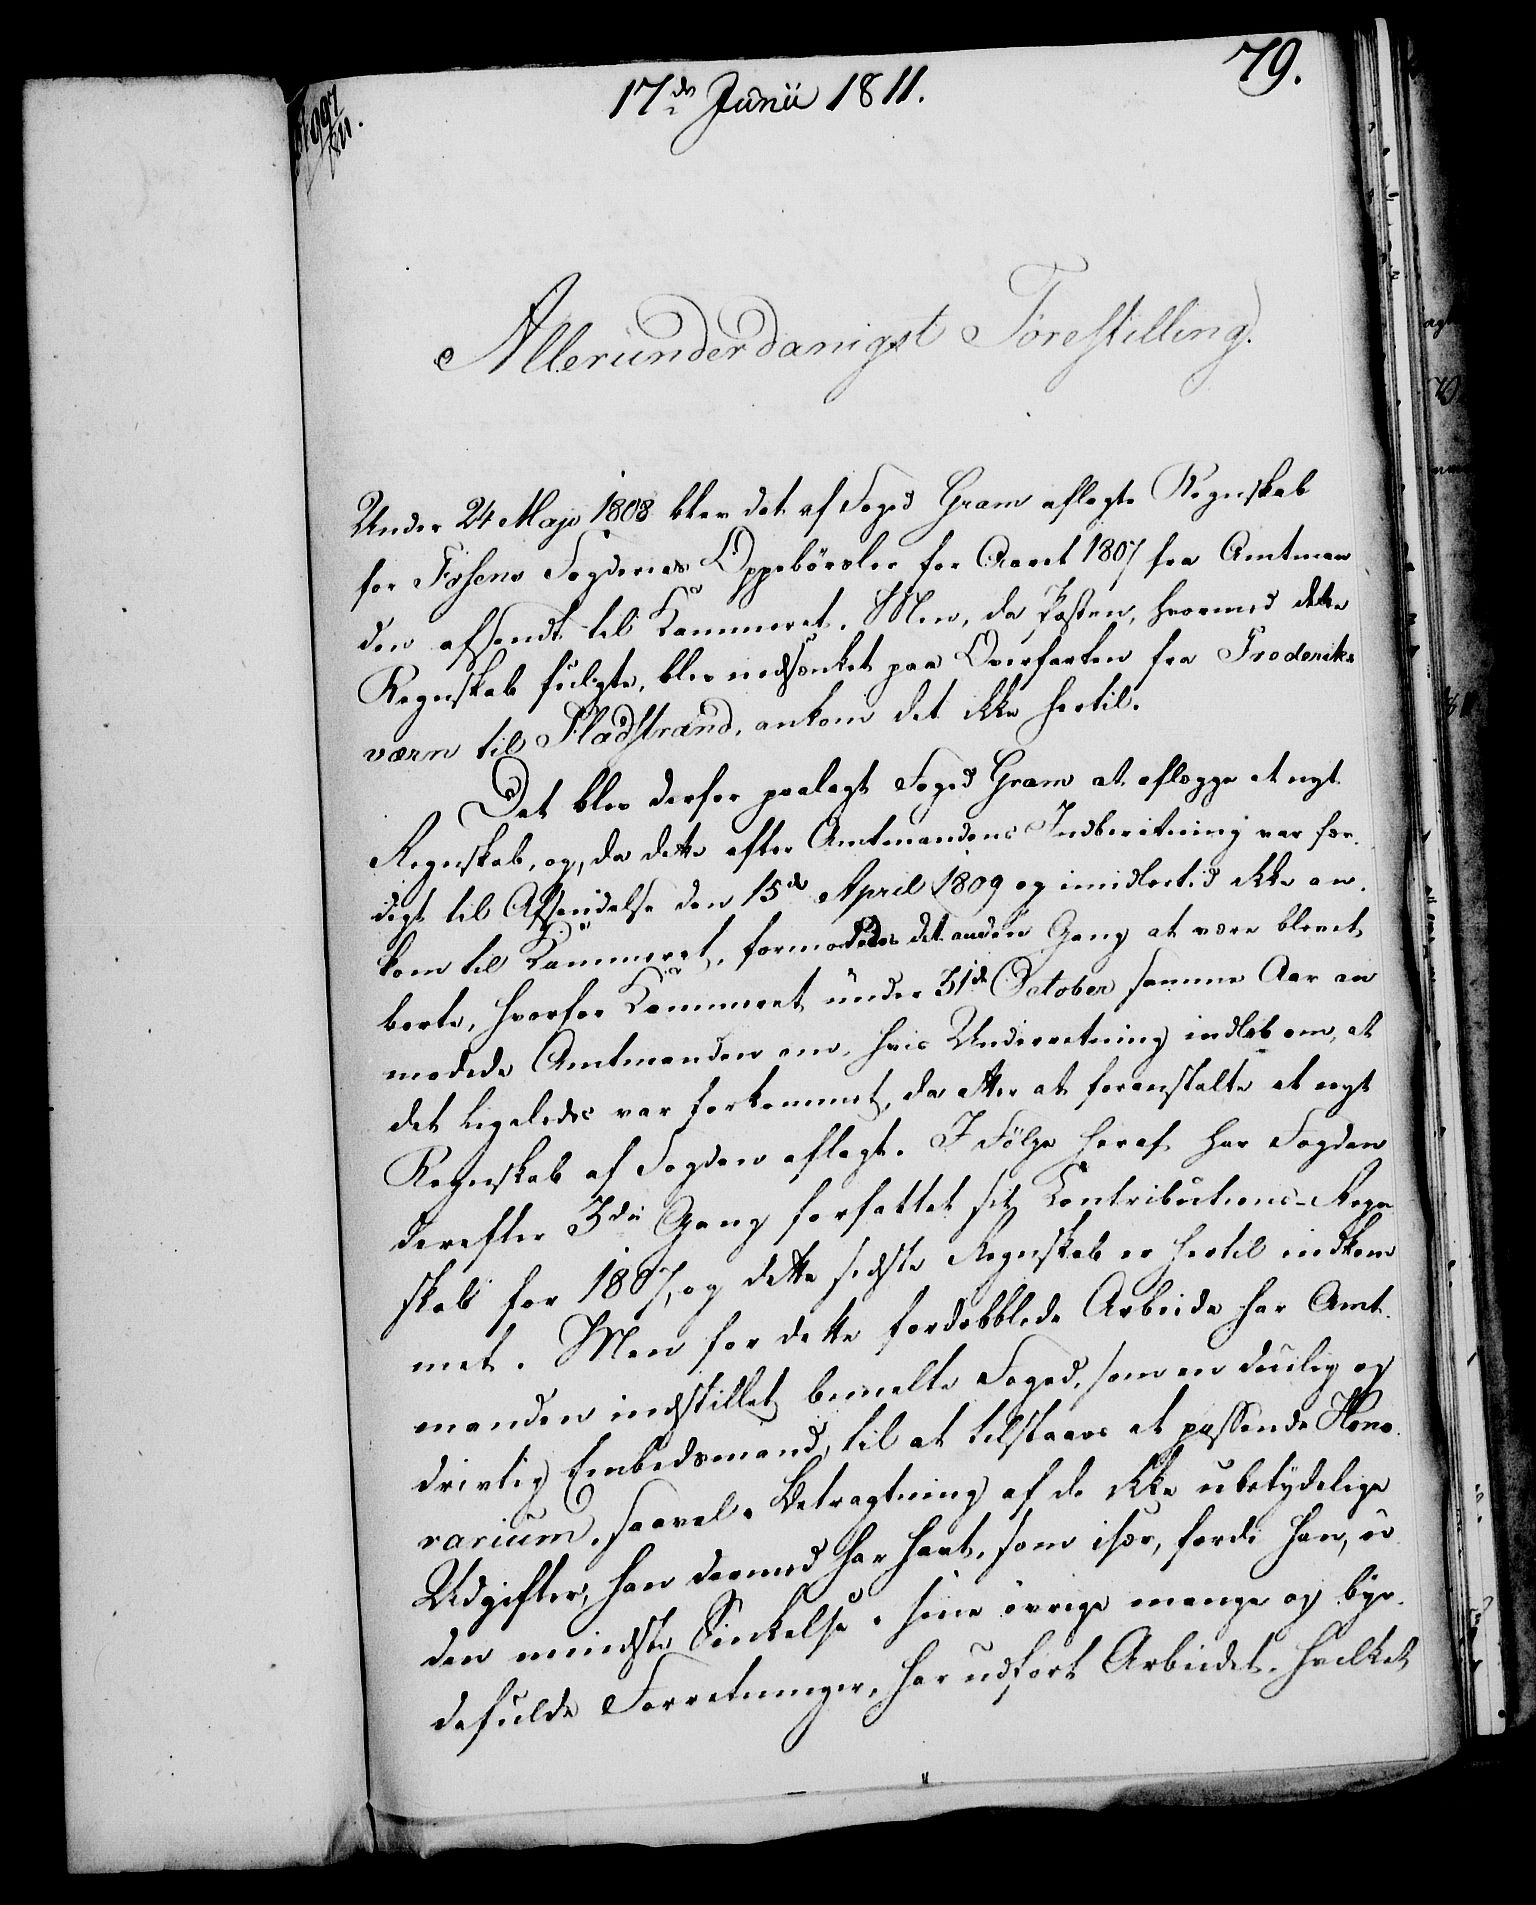 79.
17de Junii 1811.
Allerunderdanigst Forestilling.
Under 24 Maji 1808 blev det af Foged Gram aflagte Regnskab
for Fosens Fogderies Oppebørsler for Aaret 1807 fra Amtman
den afsendt til Kammeret. Men, da Posten, hvormed dette
Regnskab fulgte, blev nedsænket paa Overfarten fra Frederiks
værn til Fladstrand, ankom det ikke hertil.
Det blev derfor paalagt Foged Gram at aflægge et nyt
Regnskab, og, da dette efter Amtmandens Indberetning var fær-
digt til Afsendelse den 15de April 1809 og imidlertid ikke an-
kom til Kammeret, formodedes det anden Gang at være blevet
borte, hvorfor Kammeret under 31de October samme Aar an
modede Amtmanden om, hvis Underretning indløb om, at
det ligeledes var forkommet, da atter at foranstalte et nyt
Regnskab af Fogden aflagt. I Følge heraf har Fogden
derefter 3die Gang forfattet sit Contributions-Regn
skab for 1807, og dette sidste Regnskab er hertil indkom
met. Men for dette fordobblede Arbeide har Amt-
manden indstillet bemelte Foged, som en duelig og
drivtig Embedsmand, til at tilstaaes et passende Hono-
rarium, saavel i Betragtning af de ikke ubetydelige
Udgifter, han dermed har havt, som især, fordi han, u
den mindste Sinkelse i sine øvrige mange og byr-
defulde Forretninger, har udført Arbeidet, hvilket